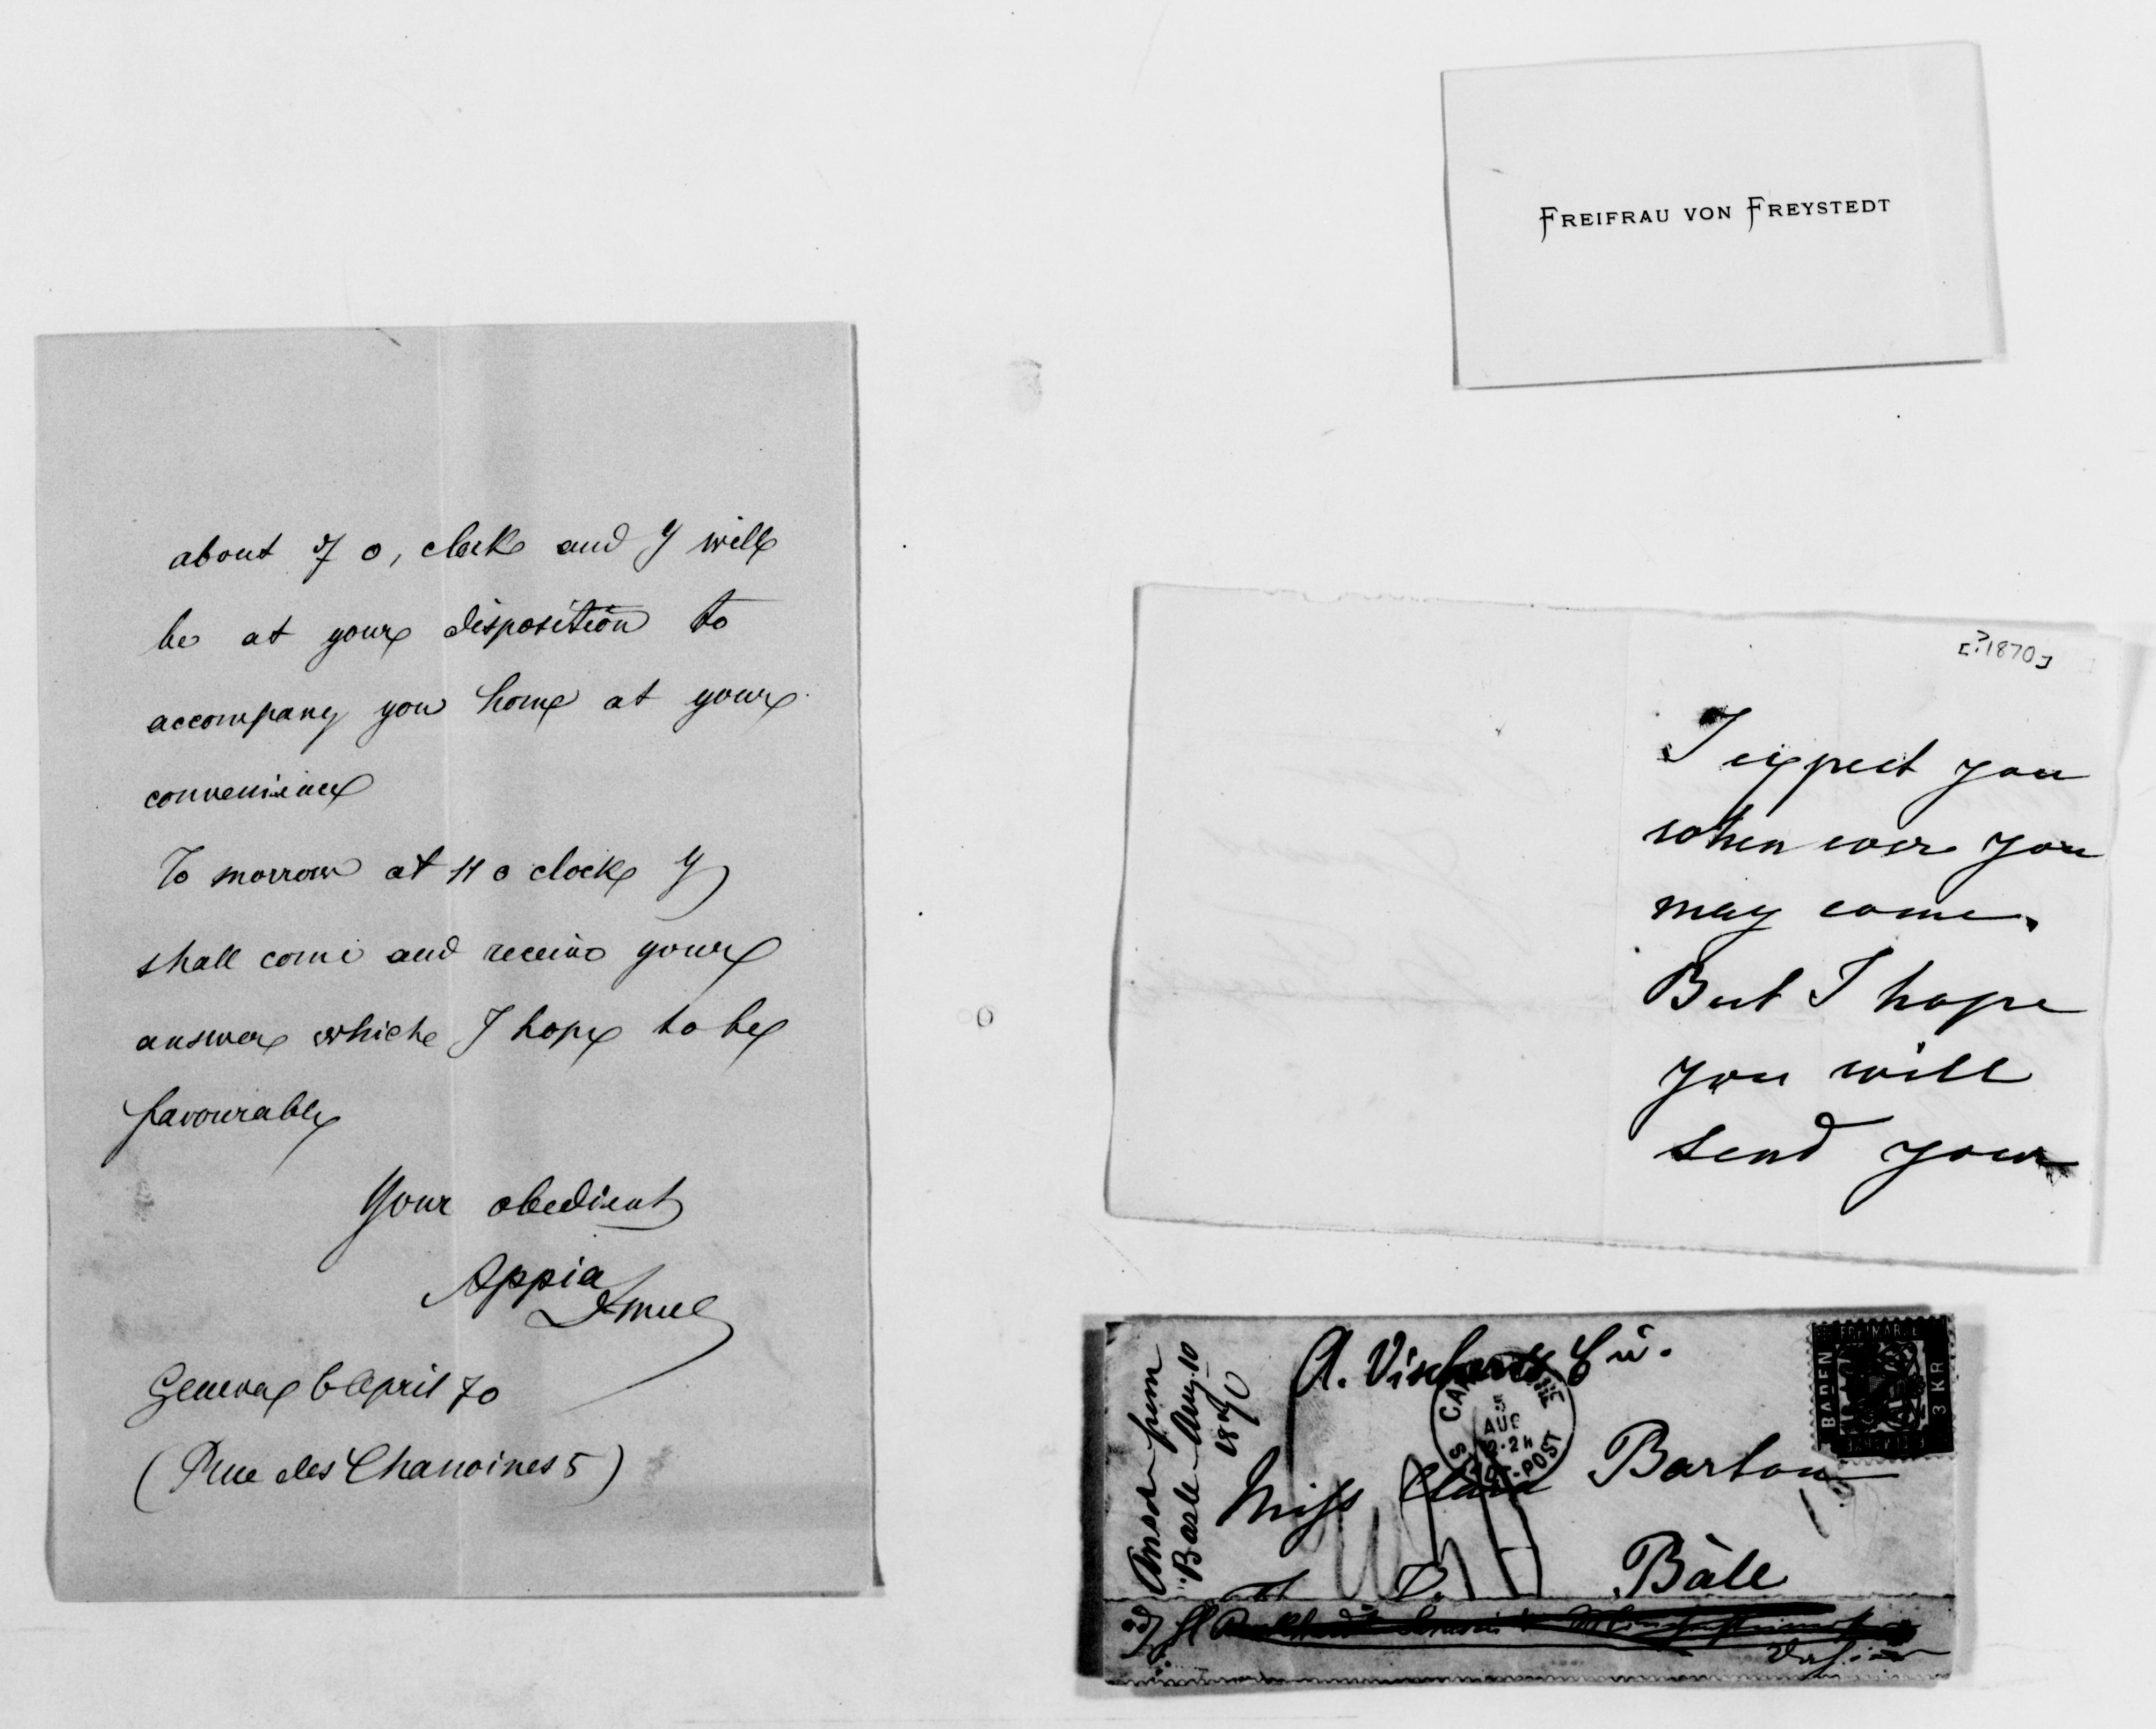 about 7 o, clock and I will
be at your disposition to
accompany you home at your
convenience
To morrow at 11 o clock I
shall come and receive your
answer which I hope to be
favourable
Your obedient
Appia
Geneva 6 April 70
(Rue des Chanoines 5)
FREIFRAU VON FREYSTEDT
[?1870]
I expect you
when ever you
may come.
But I hope
you will
send your
Answd from
Basle Aug. 10
1870
A. Vischer
5
AUG
STADT-POST
BADEN
FREIMARKE
3 KR
Miss Clara Barton
Bâle